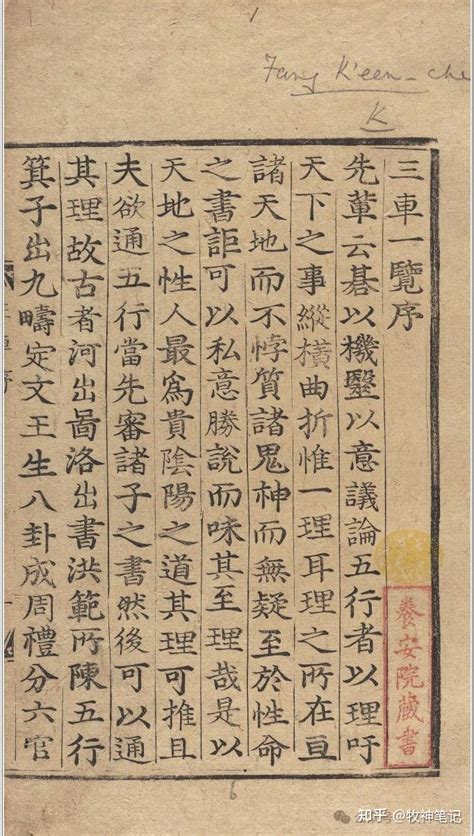 1
Fang K'een-che
K
三車一覽序
先軰云碁以機毉以意議論五行者以理吁
天下之事縱橫曲折惟一理耳理之所在亘
諸天地而不悖質諸鬼神而無疑至於性命
之書詎可以私意勝說而味其至理哉是以
天地之性人最爲貴陰陽之道其理可推且
夫欲通五行當先審諸子之書然後可以通
其理故古者河出啚洛出書洪範所陳五行
箕子出九疇定文王生八卦成周禮分六官
養安院藏書
6
知乎 @牧神笔记